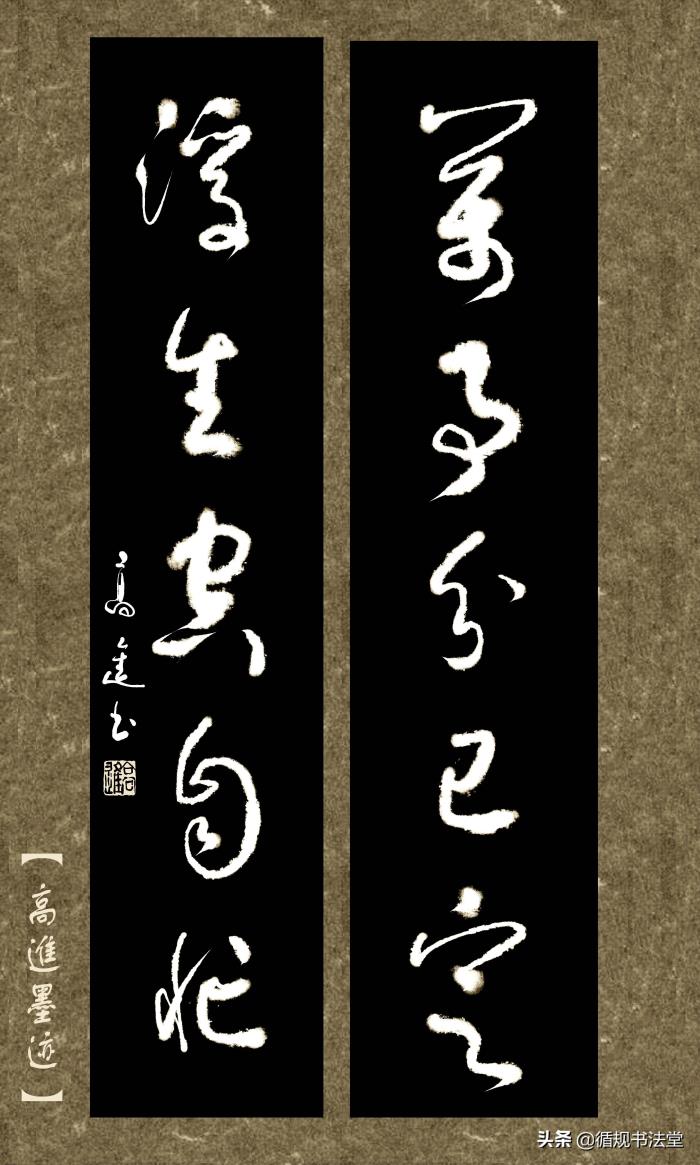 萬事分已定
浮生空自忙
高進书
【高進墨迹】
头条 @循规书法堂